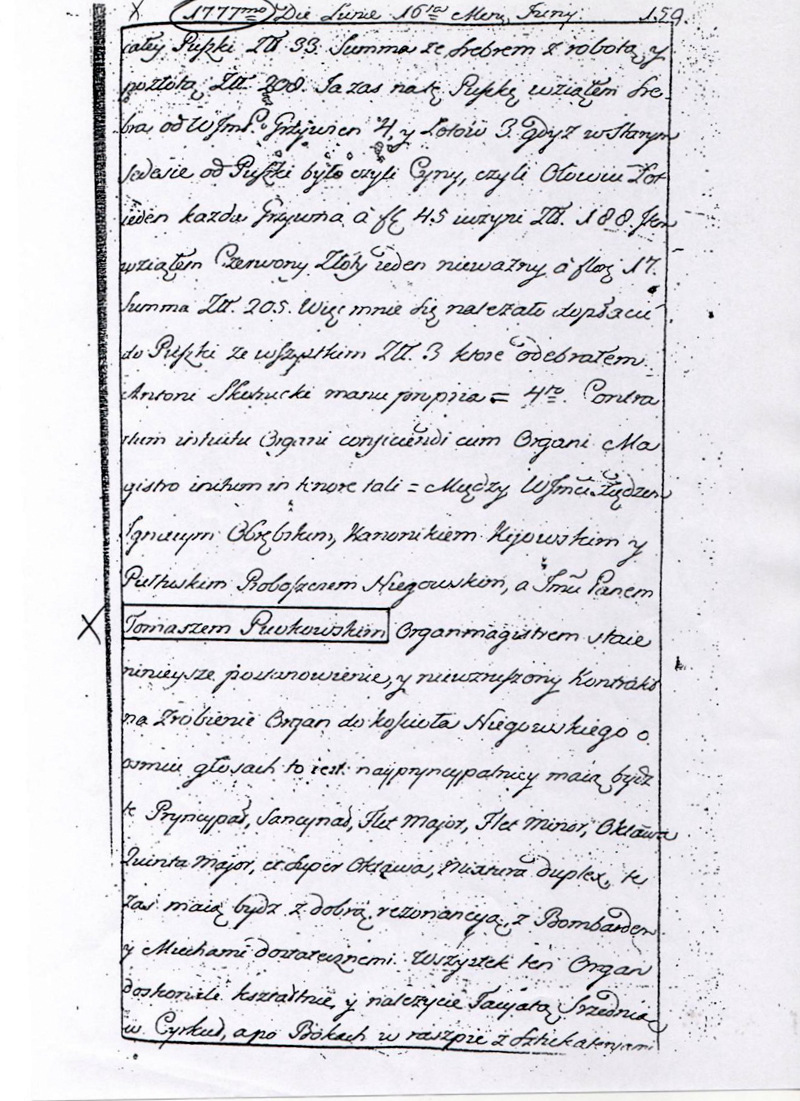 X 1777mo Die Lunae 16ta Mens. Juny. 159.
całey Puszki Złł 33. Summa ze srebrem z robotą y
pozłotą Złł. 208. Ja zas na tę Puszkę wziąłem Sre-
bra od WJmP. Grzywien 4. y Łotów 3. gdyż w starym
sedesie od Puszki było czyli Cyny, czyli Ołowiu Łot
ieden każda Grzywna à fl 45 uczyni Złł. 188. Item
wziąłem Czerwony Złóty ieden nieważny à flor 17.
Summa Złł. 205. Więc mnie się należało dopłacić
do Puszki ze wszystkim Złł. 3 ktore odebrałem
Antoni manu propria = 4to. Contra
ctum intuitu Organi conficiendi cum Organi Ma
gistro initum in tenore tali = Między WJmci Xiędzem
Ignacym Obrębskim, Kanonikiem Kijowskim y
Pułtuskim Proboszczem Niegowskim, a Jmci Panem
X Tomaszem Organmagistrem staie
ninieysze postanowienie, y niewzruszony Kontrakt
na Zrobienie Organ do kościoła Niegowskiego o
osmiu głosach to iest naypryncypalnicy maią bydz
te Pryncypał, Salicynał, Flet Major, Flet Minor, Oktawa
Quinta Major, et Super Oktawa, Mixtura duplex, te
zas maią bydz z dobrą rezonancyą, z Bombardem
y Miechami dostatecznemi. Wszystek ten Organ
doskonale kształtnie, y należycie Facyatą Srzednia
w Cyrkuł, a po Bokach w raszpie z Sztukateryami